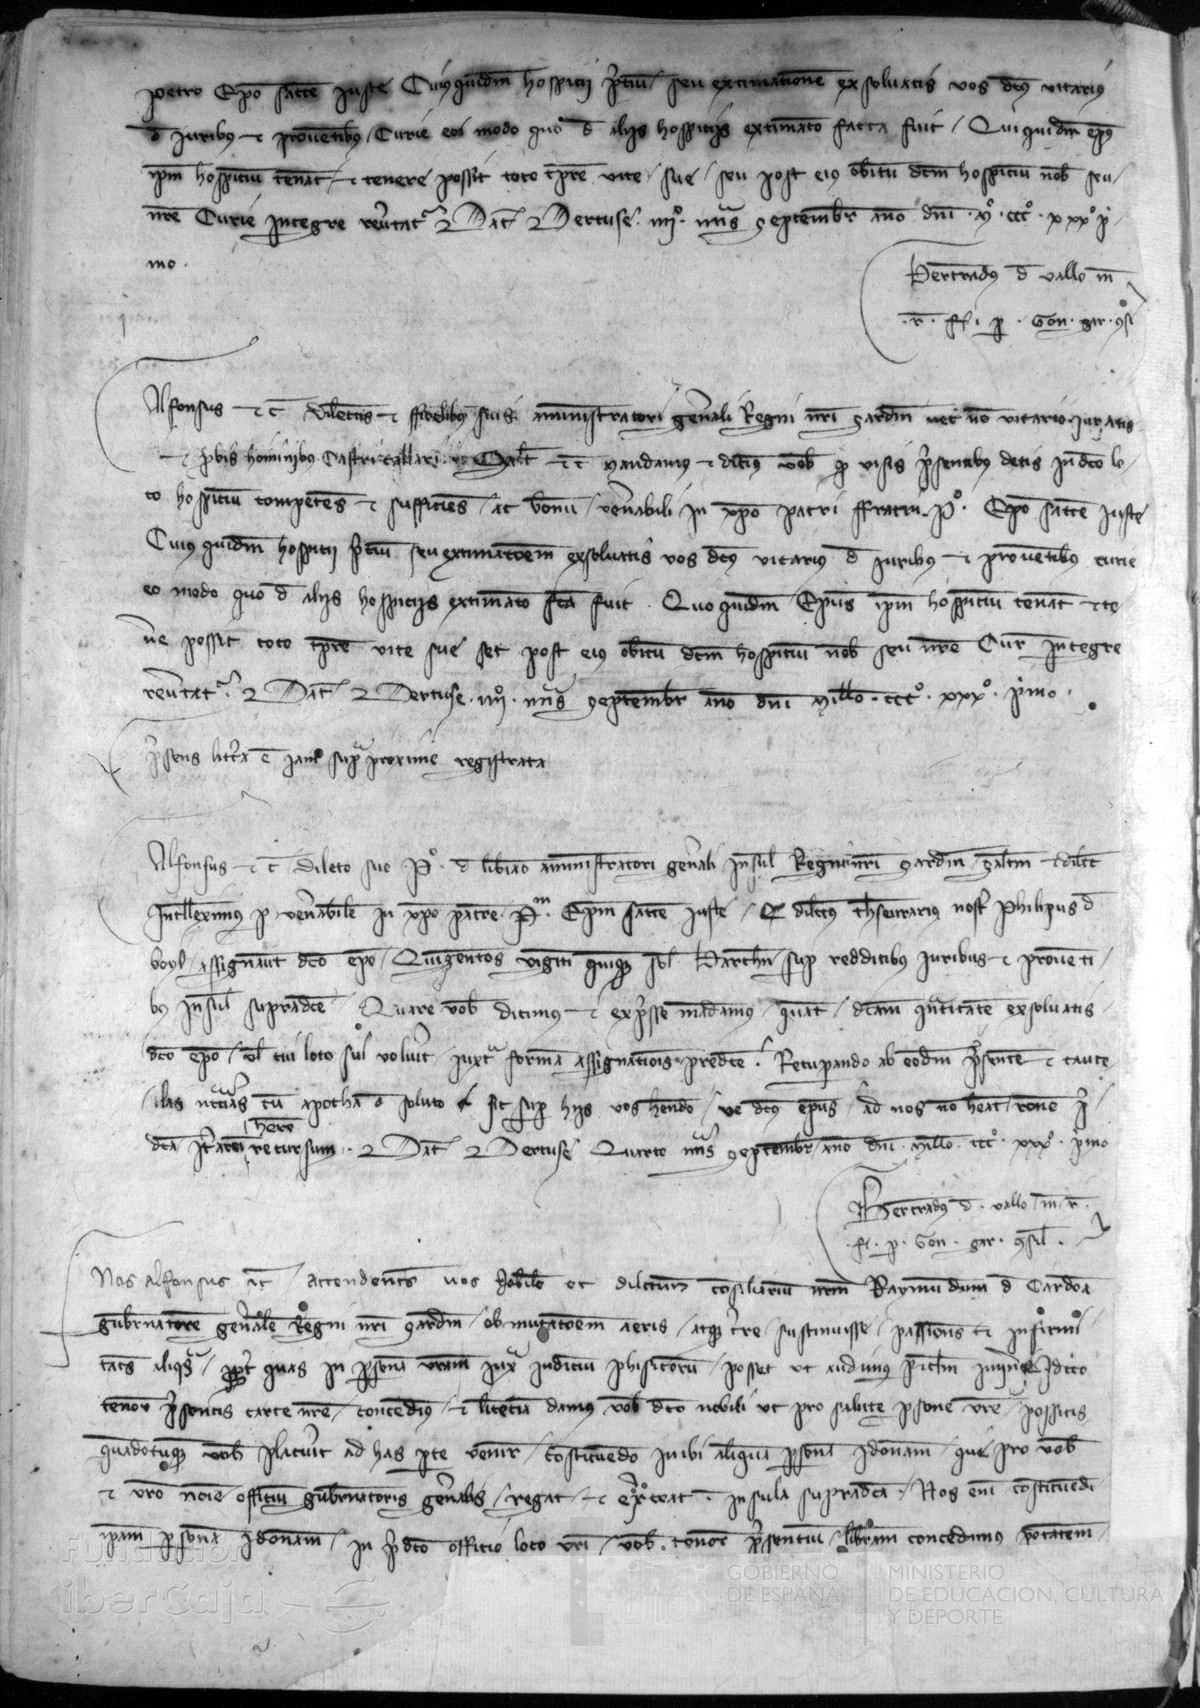 petro Epo sancte Juste Cuiusquidem hospicii precium seu extimationem exsoluatis vos dictus vicarius
de Juribus et prouentibus Curie eo modo quo de alijs hospicijs extimatio facta fuit / Qui quidem epus
ipm hospitiu teneat et tenere possit toto tpre vite sue / seu post eius obitu dcm hospitiu nob seu
nre Curie Integre reutatr Dat Dertuse iiijo nns Septembr ano dni Mo ccco xxxo pi
mo
Bertrandus d vallo m
r fi p Gon gar consi
Alfonsus etc Dilectis et fidelibus suis aministratori genali Regni nri Sardin nec no vicario Juratis
et pbis hominibus Castri Callari Salt etc Mandamus et dicimus vob q visis psentibus detis in dco lo
co hospitiu competens et sufficiens ac bonu venabili in xpo patri ffratri Po Epo sancte Juste
Cuius quidem hospitii pciu seu extimatoem exsoluatis vos dcus vicarius d Juribus et prouentibus curie
eo modo quo d alijs hospicijs extimato fca fuit Quo quidem Epus ipm hospitiu teneat et te
ne possit toto tpre vite sue set post eius obitu dcm hospitiu nob seu nre Cur integre
reutatr Dat Dertuse iiijo nns Septembr ano dni Millo ccco xxxo pmo
psens littera e iam supra proxime registrata
Alfonsus etc Dilecto suo Po d libiano aministratori genali Insul Regni nri Sardin Saltm et dilcc
Intelleximus p venabile in xpo patre Pm Epm sancte Juste / Q dilectus thesaurarius nost Philipus d
boyl assignauit dco epo Quigentos viginti quiqz sol Barchn sup redditibus Juribus et proueti
bus Insul supradce Quare vob dicimus et expsse madamus quat dcam quatitate exsoluatis
dco epo vl cui loco sui voluit iuxta forma assignationis predce Recupando ab eodm psente et caute
las ncias cu apocha d soluto & sic sup hijs vos hendo ve dcus epus ad nos no heat rone p
dca itati here recursum Dat Dertuse Quarto nns Septembr ano dni Millo ccco xxxo pmo
Bertrandus d vallo m r
fi p Gon gar consil
Nos Alfonsus etc Attendentes vos Nobile et dilectum consiliariu nrm Raymundum d Cardona
gubernatore generale Regni nri Sardin ob mutatoem aeris atqz tre sustinuisse passiones et infirmi
tates aliqs ppt quas in psona vram iuxta iudiciu phisicoru posset ut audimus piclm iminere Idcco
tenor psentis carte nre concedimus et licecia damus vob dco nobili ut pro salute psone vre possitis
quadocuqz vob placuit ad has ptes venir constituedo inibi aliqua psona Idoneam que pro vob
et vro noie officiu gubernatoris generalis regat et exerceat in insula supradca Nos eni constituedi
ipam psona Idoneam in pdco officio loco vri vob tenor psentiu liberam concedimus potatem
Fundación
iberCaja
GOBIERNO
DE ESPAÑA
MINISTERIO
DE EDUCACIÓN, CULTURA
Y DEPORTE